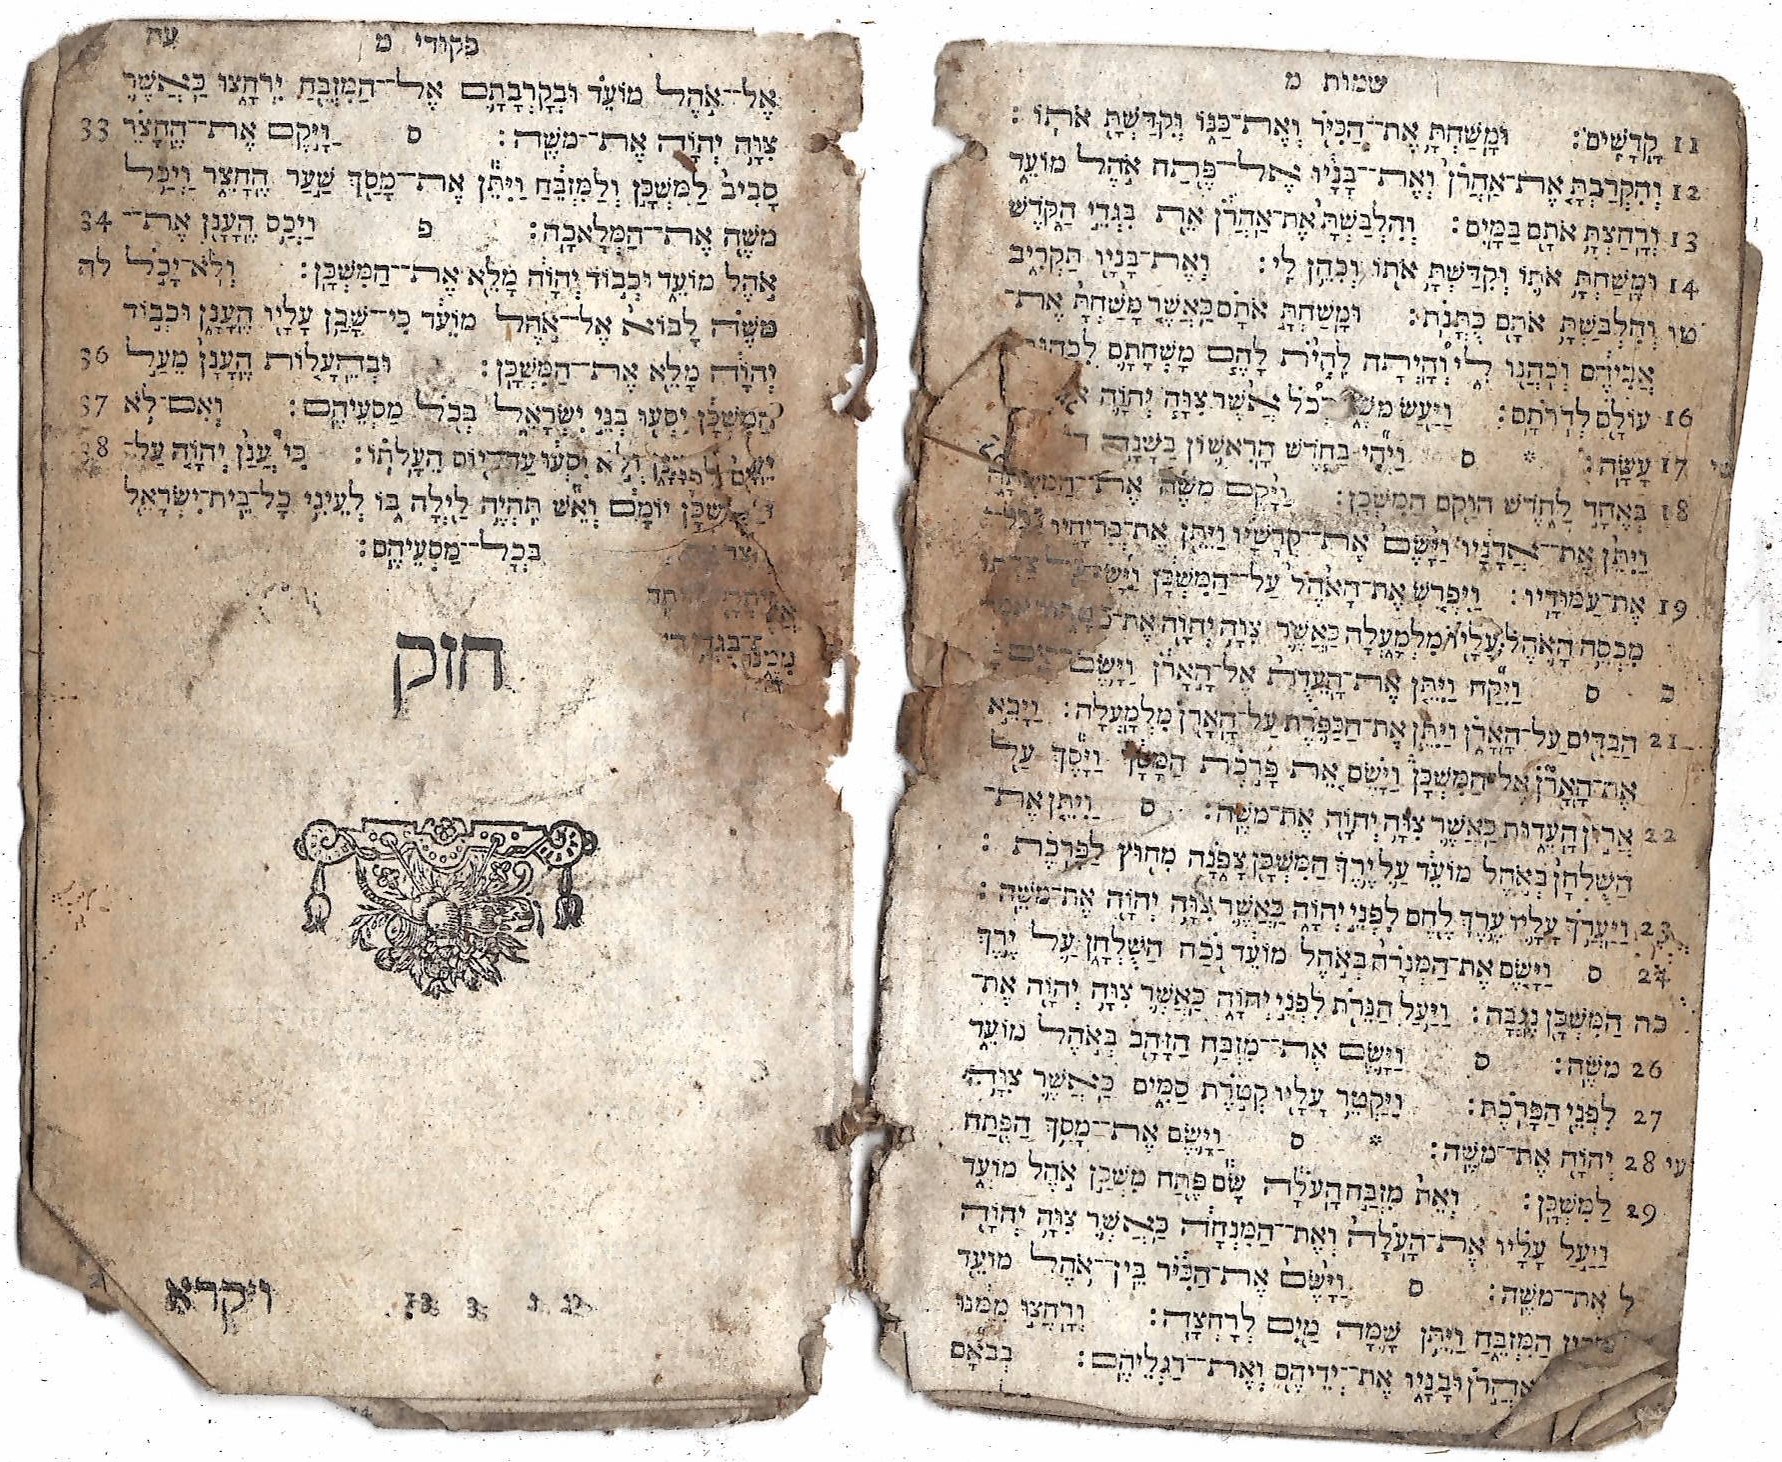 שמות מ
11 קָדָשִׁים: וּמָשַׁחְתָּ אֶת־הַכִּיֹּר וְאֶת־כַּנּוֹ וְקִדַּשְׁתָּ אֹתוֹ:
12 וְהִקְרַבְתָּ אֶת־אַהֲרֹן וְאֶת־בָּנָיו אֶל־פֶּתַח אֹהֶל מוֹעֵד
13 וְרָחַצְתָּ אֹתָם בַּמָּיִם: וְהִלְבַּשְׁתָּ אֶת־אַהֲרֹן אֵת בִּגְדֵי הַקֹּדֶשׁ
14 וּמָשַׁחְתָּ אֹתוֹ וְקִדַּשְׁתָּ אֹתוֹ וְכִהֵן לִי: וְאֶת־בָּנָיו תַּקְרִיב
טו וְהִלְבַּשְׁתָּ אֹתָם כֻּתֳּנֹת: וּמָשַׁחְתָּ אֹתָם כַּאֲשֶׁר מָשַׁחְתָּ אֶת־
אֲבִיהֶם וְכִהֲנוּ לִי וְהָיְתָה לִהְיֹת לָהֶם מָשְׁחָתָם לִכְהֻנַּת
16 עוֹלָם לְדֹרֹתָם: וַיַּעַשׂ מֹשֶׁה כְּכֹל אֲשֶׁר צִוָּה יְהוָה
17 עָשָׂה: * ס וַיְהִי בַּחֹדֶשׁ הָרִאשׁוֹן בַּשָּׁנָה
18 בְּאֶחָד לַחֹדֶשׁ הוּקַם הַמִּשְׁכָּן: וַיָּקֶם מֹשֶׁה אֶת־הַמִּשְׁכָּן
וַיִּתֵּן אֶת־אֲדָנָיו וַיָּשֶׂם אֶת־קְרָשָׁיו וַיִּתֵּן אֶת־בְּרִיחָיו וַיָּקֶם
19 אֶת־עַמּוּדָיו: וַיִּפְרֹשׂ אֶת־הָאֹהֶל עַל־הַמִּשְׁכָּן וַיָּשֶׂם
מִכְסֵה הָאֹהֶל עָלָיו מִלְמָעְלָה כַּאֲשֶׁר צִוָּה יְהוָה אֶת־מֹשֶׁה:
כ ס וַיִּקַּח וַיִּתֵּן אֶת־הָעֵדֻת אֶל־הָאָרֹן וַיָּשֶׂם
הַבַּדִּים עַל־הָאָרֹן וַיִּתֵּן אֶת־הַכַּפֹּרֶת עַל־הָאָרֹן מִלְמָעְלָה: וַיָּבֵא 21
אֶת־הָאָרֹן אֶל־הַמִּשְׁכָּן וַיָּשֶׂם אֵת פָּרֹכֶת הַמָּסָךְ וַיָּסֶךְ עַל
22 אֲרוֹן הָעֵדוּת כַּאֲשֶׁר צִוָּה יְהוָה אֶת־מֹשֶׁה: ס וַיִּתֵּן אֶת־
הַשֻּׁלְחָן בְּאֹהֶל מוֹעֵד עַל יֶרֶךְ הַמִּשְׁכָּן צָפֹנָה מִחוּץ לַפָּרֹכֶת:
23 וַיַּעֲרֹךְ עָלָיו עֵרֶךְ לֶחֶם לִפְנֵי יְהוָה כַּאֲשֶׁר צִוָּה יְהוָה אֶת־מֹשֶׁה:
24 ס וַיָּשֶׂם אֶת־הַמְּנֹרָה בְּאֹהֶל מוֹעֵד נֹכַח הַשֻּׁלְחָן עַל יֶרֶךְ
כה הַמִּשְׁכָּן נֶגְבָּה: וַיַּעַל הַנֵּרֹת לִפְנֵי יְהוָה כַּאֲשֶׁר צִוָּה יְהוָה אֶת־
26 מֹשֶׁה: ס וַיָּשֶׂם אֶת־מִזְבַּח הַזָּהָב בְּאֹהֶל מוֹעֵד
27 לִפְנֵי הַפָּרֹכֶת: וַיַּקְטֵר עָלָיו קְטֹרֶת סַמִּים כַּאֲשֶׁר צִוָּה
28 יְהוָה אֶת־מֹשֶׁה: * ס וַיָּשֶׂם אֶת־מָסַךְ הַפֶּתַח
29 לַמִּשְׁכָּן: וְאֵת מִזְבַּח הָעֹלָה שָׂם פֶּתַח מִשְׁכַּן אֹהֶל מוֹעֵד
וַיַּעַל עָלָיו אֶת־הָעֹלָה וְאֶת־הַמִּנְחָה כַּאֲשֶׁר צִוָּה יְהוָה
ל אֶת־מֹשֶׁה: ס וַיָּשֶׂם אֶת־הַכִּיֹּר בֵּין־אֹהֶל מוֹעֵד
הַמִּזְבֵּחַ וַיִּתֵּן שָׁמָּה מַיִם לְרָחְצָה: וְרָחֲצוּ מִמֶּנּוּ
אַהֲרֹן וּבָנָיו אֶת־יְדֵיהֶם וְאֶת־רַגְלֵיהֶם:
בְּבֹאָם
פקודי מ עח
אֶל־אֹהֶל מוֹעֵד וּבְקָרְבָתָם אֶל־הַמִּזְבֵּחַ יִרְחָצוּ כַּאֲשֶׁר
צִוָּה יְהוָה אֶת־מֹשֶׁה: ס וַיָּקֶם אֶת־הֶחָצֵר 33
סָבִיב לַמִּשְׁכָּן וְלַמִּזְבֵּחַ וַיִּתֵּן אֶת־מָסַךְ שַׁעַר הֶחָצֵר וַיְכַל
מֹשֶׁה אֶת־הַמְּלָאכָה: פ וַיְכַס הֶעָנָן אֶת־ 34
אֹהֶל מוֹעֵד וּכְבוֹד יְהוָה מָלֵא אֶת־הַמִּשְׁכָּן: וְלֹא־יָכֹל לה
מֹשֶׁה לָבוֹא אֶל־אֹהֶל מוֹעֵד כִּי־שָׁכַן עָלָיו הֶעָנָן וּכְבוֹד
יְהוָה מָלֵא אֶת־הַמִּשְׁכָּן: וּבְהֵעָלוֹת הֶעָנָן מֵעַל 36
הַמִּשְׁכָּן יִסְעוּ בְּנֵי יִשְׂרָאֵל בְּכֹל מַסְעֵיהֶם: וְאִם־לֹא 37
וְלֹא יִסְעוּ עַד־יוֹם הֵעָלֹתוֹ: כִּי עֲנַן יְהוָה עַל־ 38
הַמִּשְׁכָּן יוֹמָם וְאֵשׁ תִּהְיֶה לַיְלָה בּוֹ לְעֵינֵי כָל־בֵּית־יִשְׂרָאֵל
בְּכָל־מַסְעֵיהֶם:
חזק
ויקרא